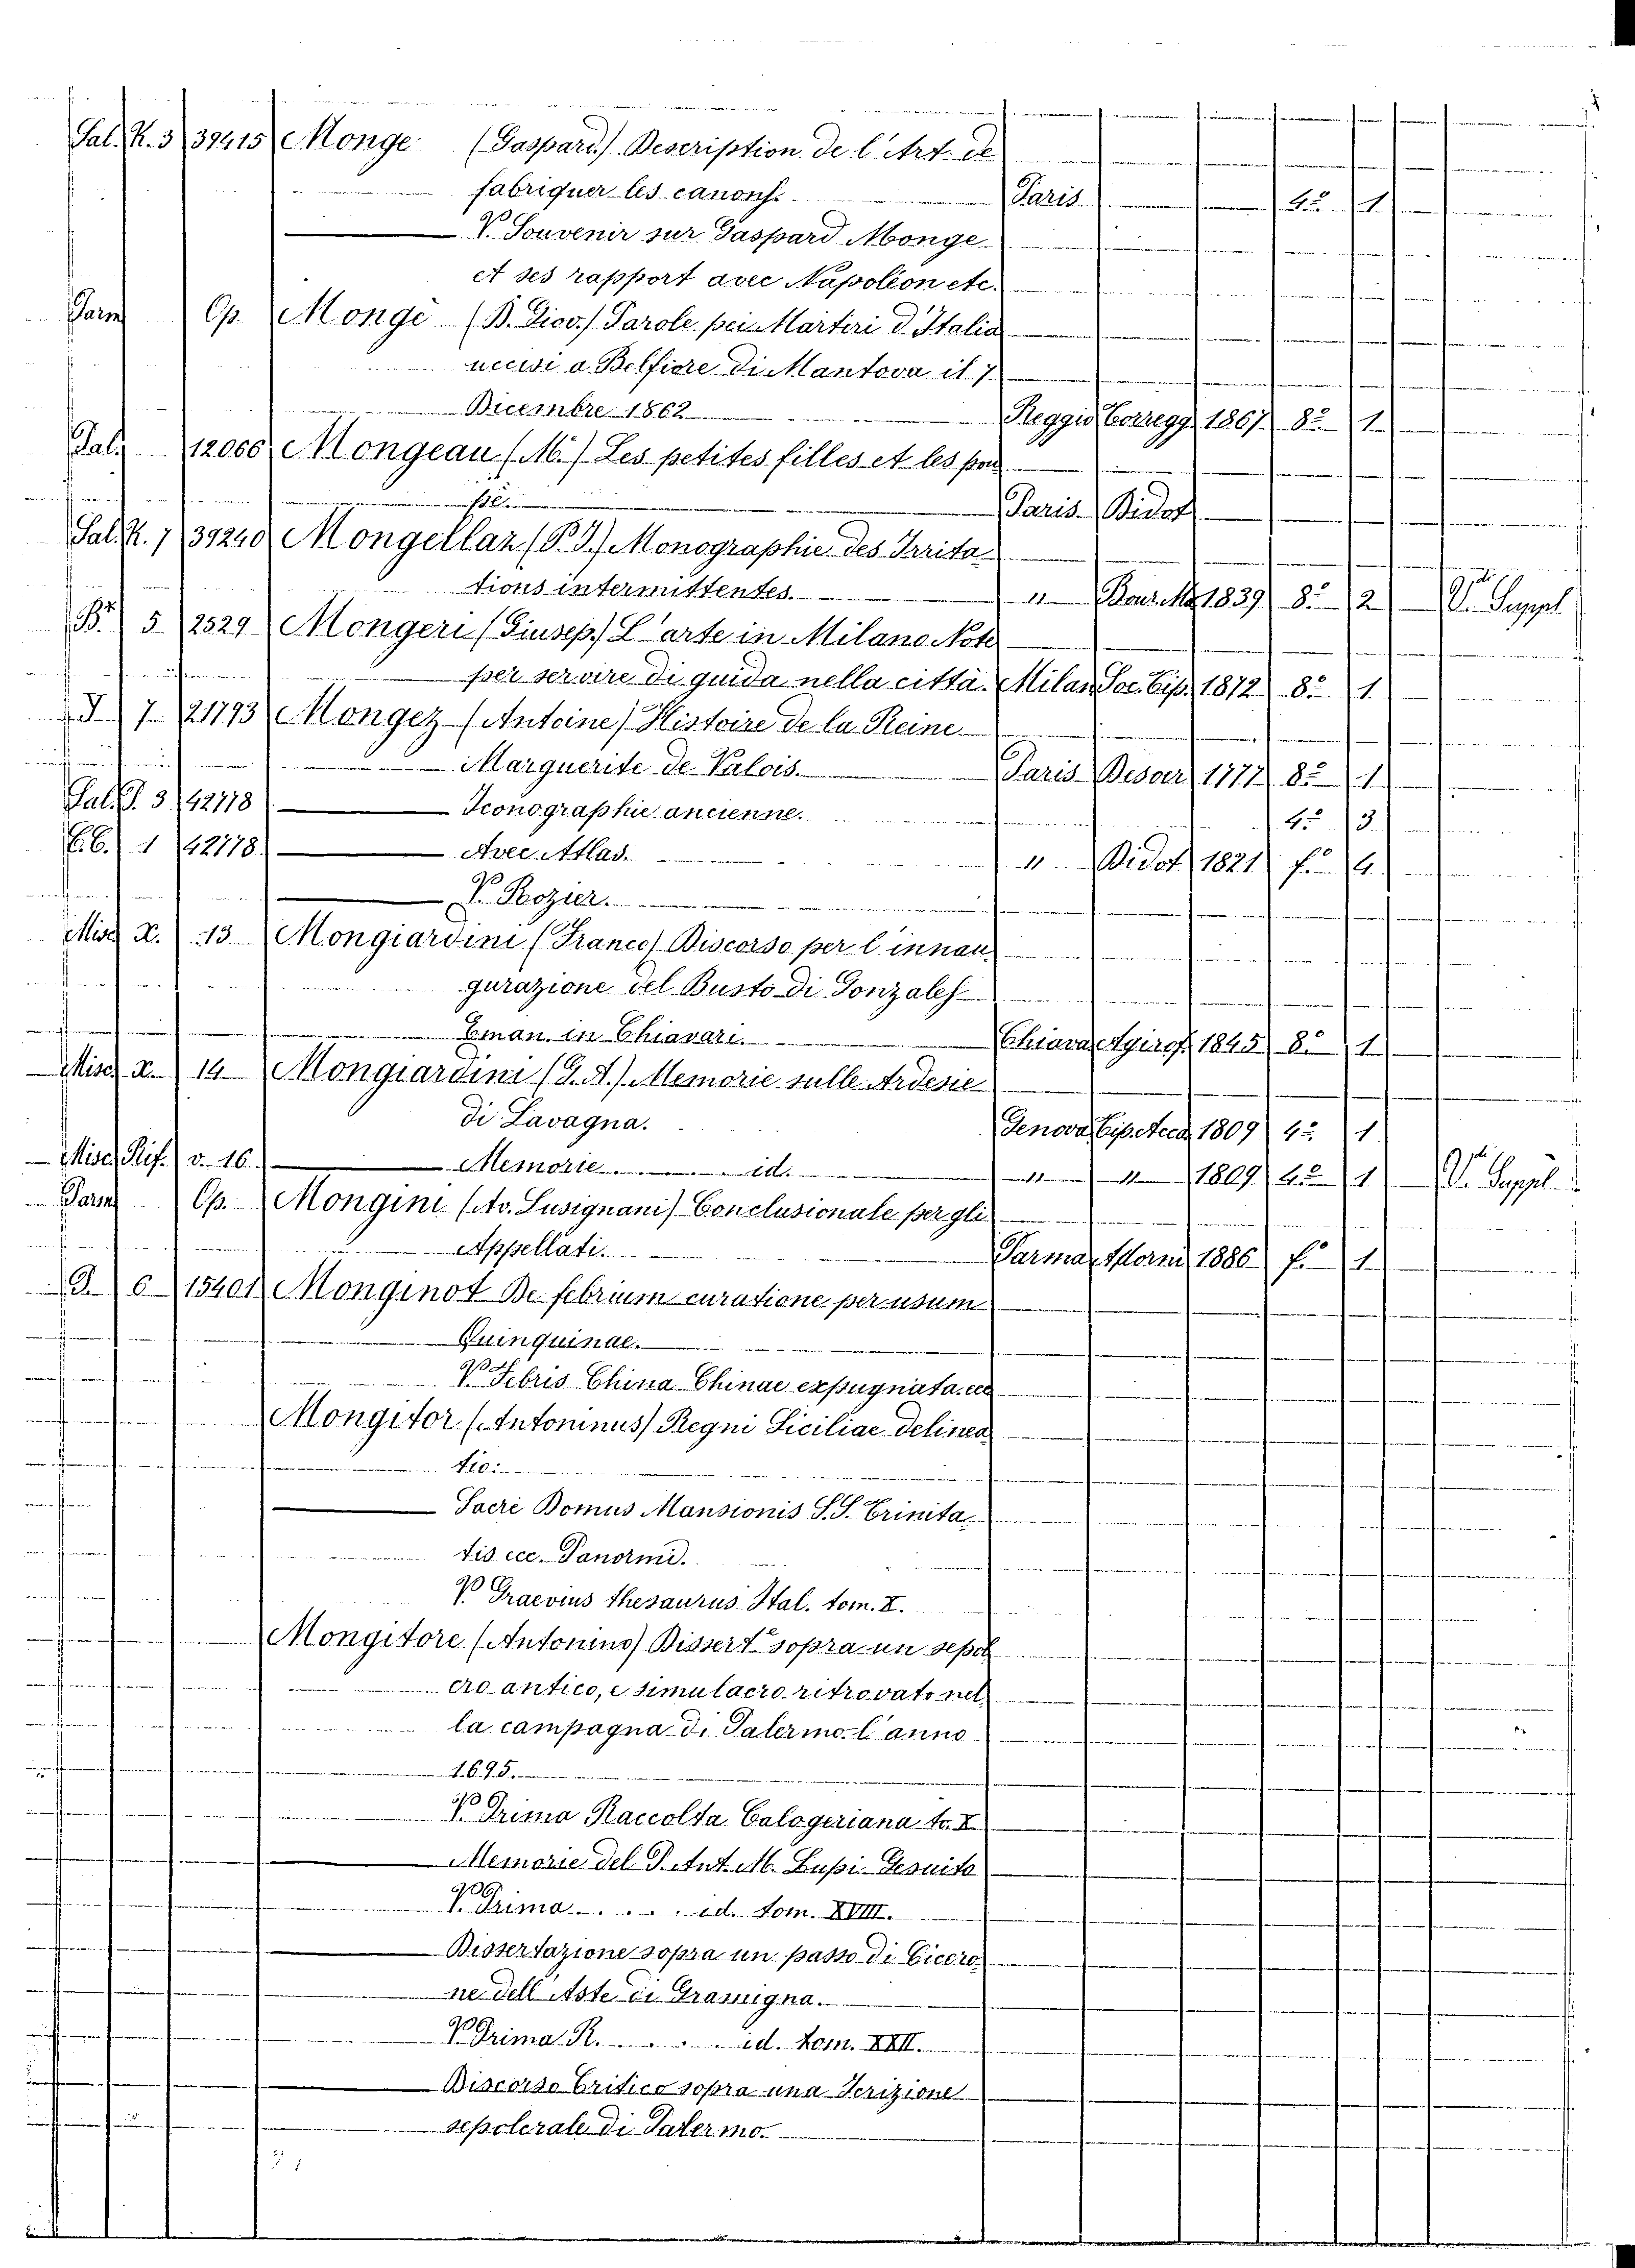 Sal. K. 3 39415 Monge (Gaspard) Description de l'Art de
fabriquer les canons. Paris 4.° 1
V. Souvenir sur Gaspard Monge
et ses rapport avec Napoléon etc.
Parm Op. Monge (B. Giov.) Parole pei Martiri d'Italia
uccisi a Belfiore di Mantova il 7
Dicembre 1862 Reggio Corregg 1867 8.° 1
Sal. 12066 Mongeau (M.) Les petites filles et les pou
pée. Paris Didot
Sal. K. 7 39240 Mongellaz (P. J.) Monographie des Irrita
tions intermittentes. " 1839 8.° 2 V. Suppl.
Br 5 2529 Mongeri (Giusep.) L'arte in Milano Note
per servire di guida nella città. Milan Soc. Tip. 1872 8.° 1
I 7 21793 Mongez (Antoine) Histoire de la Reine
Marguerite de Valois. Paris 1777 8.° 1
Sal. J. 3 42778 Iconographie ancienne. 4.° 3
1 42778 Avec Atlas. " Didot 1821 f.° 4
V. Rozier.
Misc x. 13 Mongiardini (Franc.) Discorso per l'innau
gurazione del Busto di Gonzales
Eman. in Chiavari. Chiava Agirof 1845 8.° 1
Misc x. 14 Mongiardini (G. A.) Memorie sulle Ardesie
di Lavagna. Genova Tip. Acca 1809 4.° 1
Misc Rif. v. 16 Memorie id. " " 1809 4.° 1 V. Suppl.
Parm Op. Mongini (Av. Lusignani) Conclusionale per gli
Appellati. Parma 1886 f.° 1
G. 6 15401 Monginot De febrium curatione per usum
Quinquinae.
V. Febris China Chinae expugnata ec
Mongitor (Antoninus) Regni Siciliae delinea
tio.
Sacri Domus Mansionis S.S. Trinita
tis ecc. Panormi.
V. Graevius thesaurus Ital. tom. X.
Mongitore (Antonino) Dissert.e sopra un sepol
cro antico, e simulacro ritrovato nel
la campagna di Palermo l'anno
1695.
V. Prima Raccolta Calogeriana to. X
Memorie del P. Ant. M. Lupi Gesuita
V. Prima . . . . . id. tom. XVIII.
Dissertazione sopra un passo di Cicero
ne dell'Aste di Gramigna.
V. Prima R. . . . . id. tom. XXII.
Discorso Critico sopra una Iscrizione
sepolcrale di Palermo.